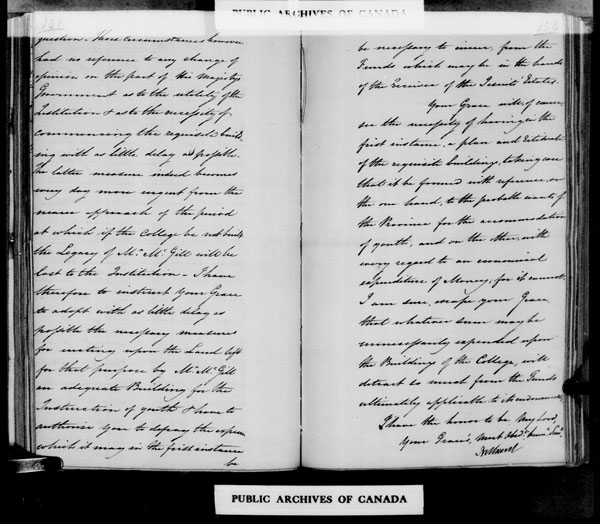 PUBLIC ARCHIVES OF CANADA
question. Those circumstances however
had no reference to any change of
opinion on the part of His Majestys
Government as to the utility of the
Institution & as to the necessity of
commencing the requisite build
ing with as little delay as possible.
The latter measure indeed becomes
every day more urgent from the
nearer approach of the period
at which if the College be not built
the Legacy of Mr. McGill will be
lost to the Institution - I have
therefore to instruct Your Grace
to adopt with as little delay as
possible the necessary measures
for erecting upon the Land left
for that purpose by Mr. McGill
an adequate Building for the
Instruction of youth & have to
authorise You to defray the expence
which it may in the first instance
be
be necessary to incur, from the
Funds which may be in the hands
of the Receiver of the Jesuits Estates.
Your Grace will of course,
see the necessity of having in the
first instance, a plan and Estimate
of the requisite building, taking care
that it be formed with reference, on
the one hand, to the probable wants of
the Province for the accommodation
of youth, and on the other, with
every regard to an economical
expenditure of Money, for it cannot
I am sure, escape your Grace,
that whatever sum may be
unnecessarily expended upon
the Building of the College, will
detract so much from the Funds
ultimately applicable to its endowment.
I have the honor to be My Lord,
Your Grace's, Most Obedt. humb. Sert.
Bathurst
PUBLIC ARCHIVES OF CANADA